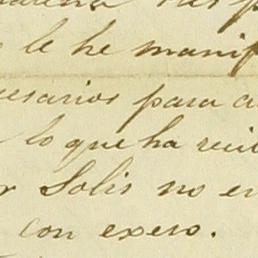 le he manif
esarios para a
lo que ha reci
r Solis no en
con exeso.